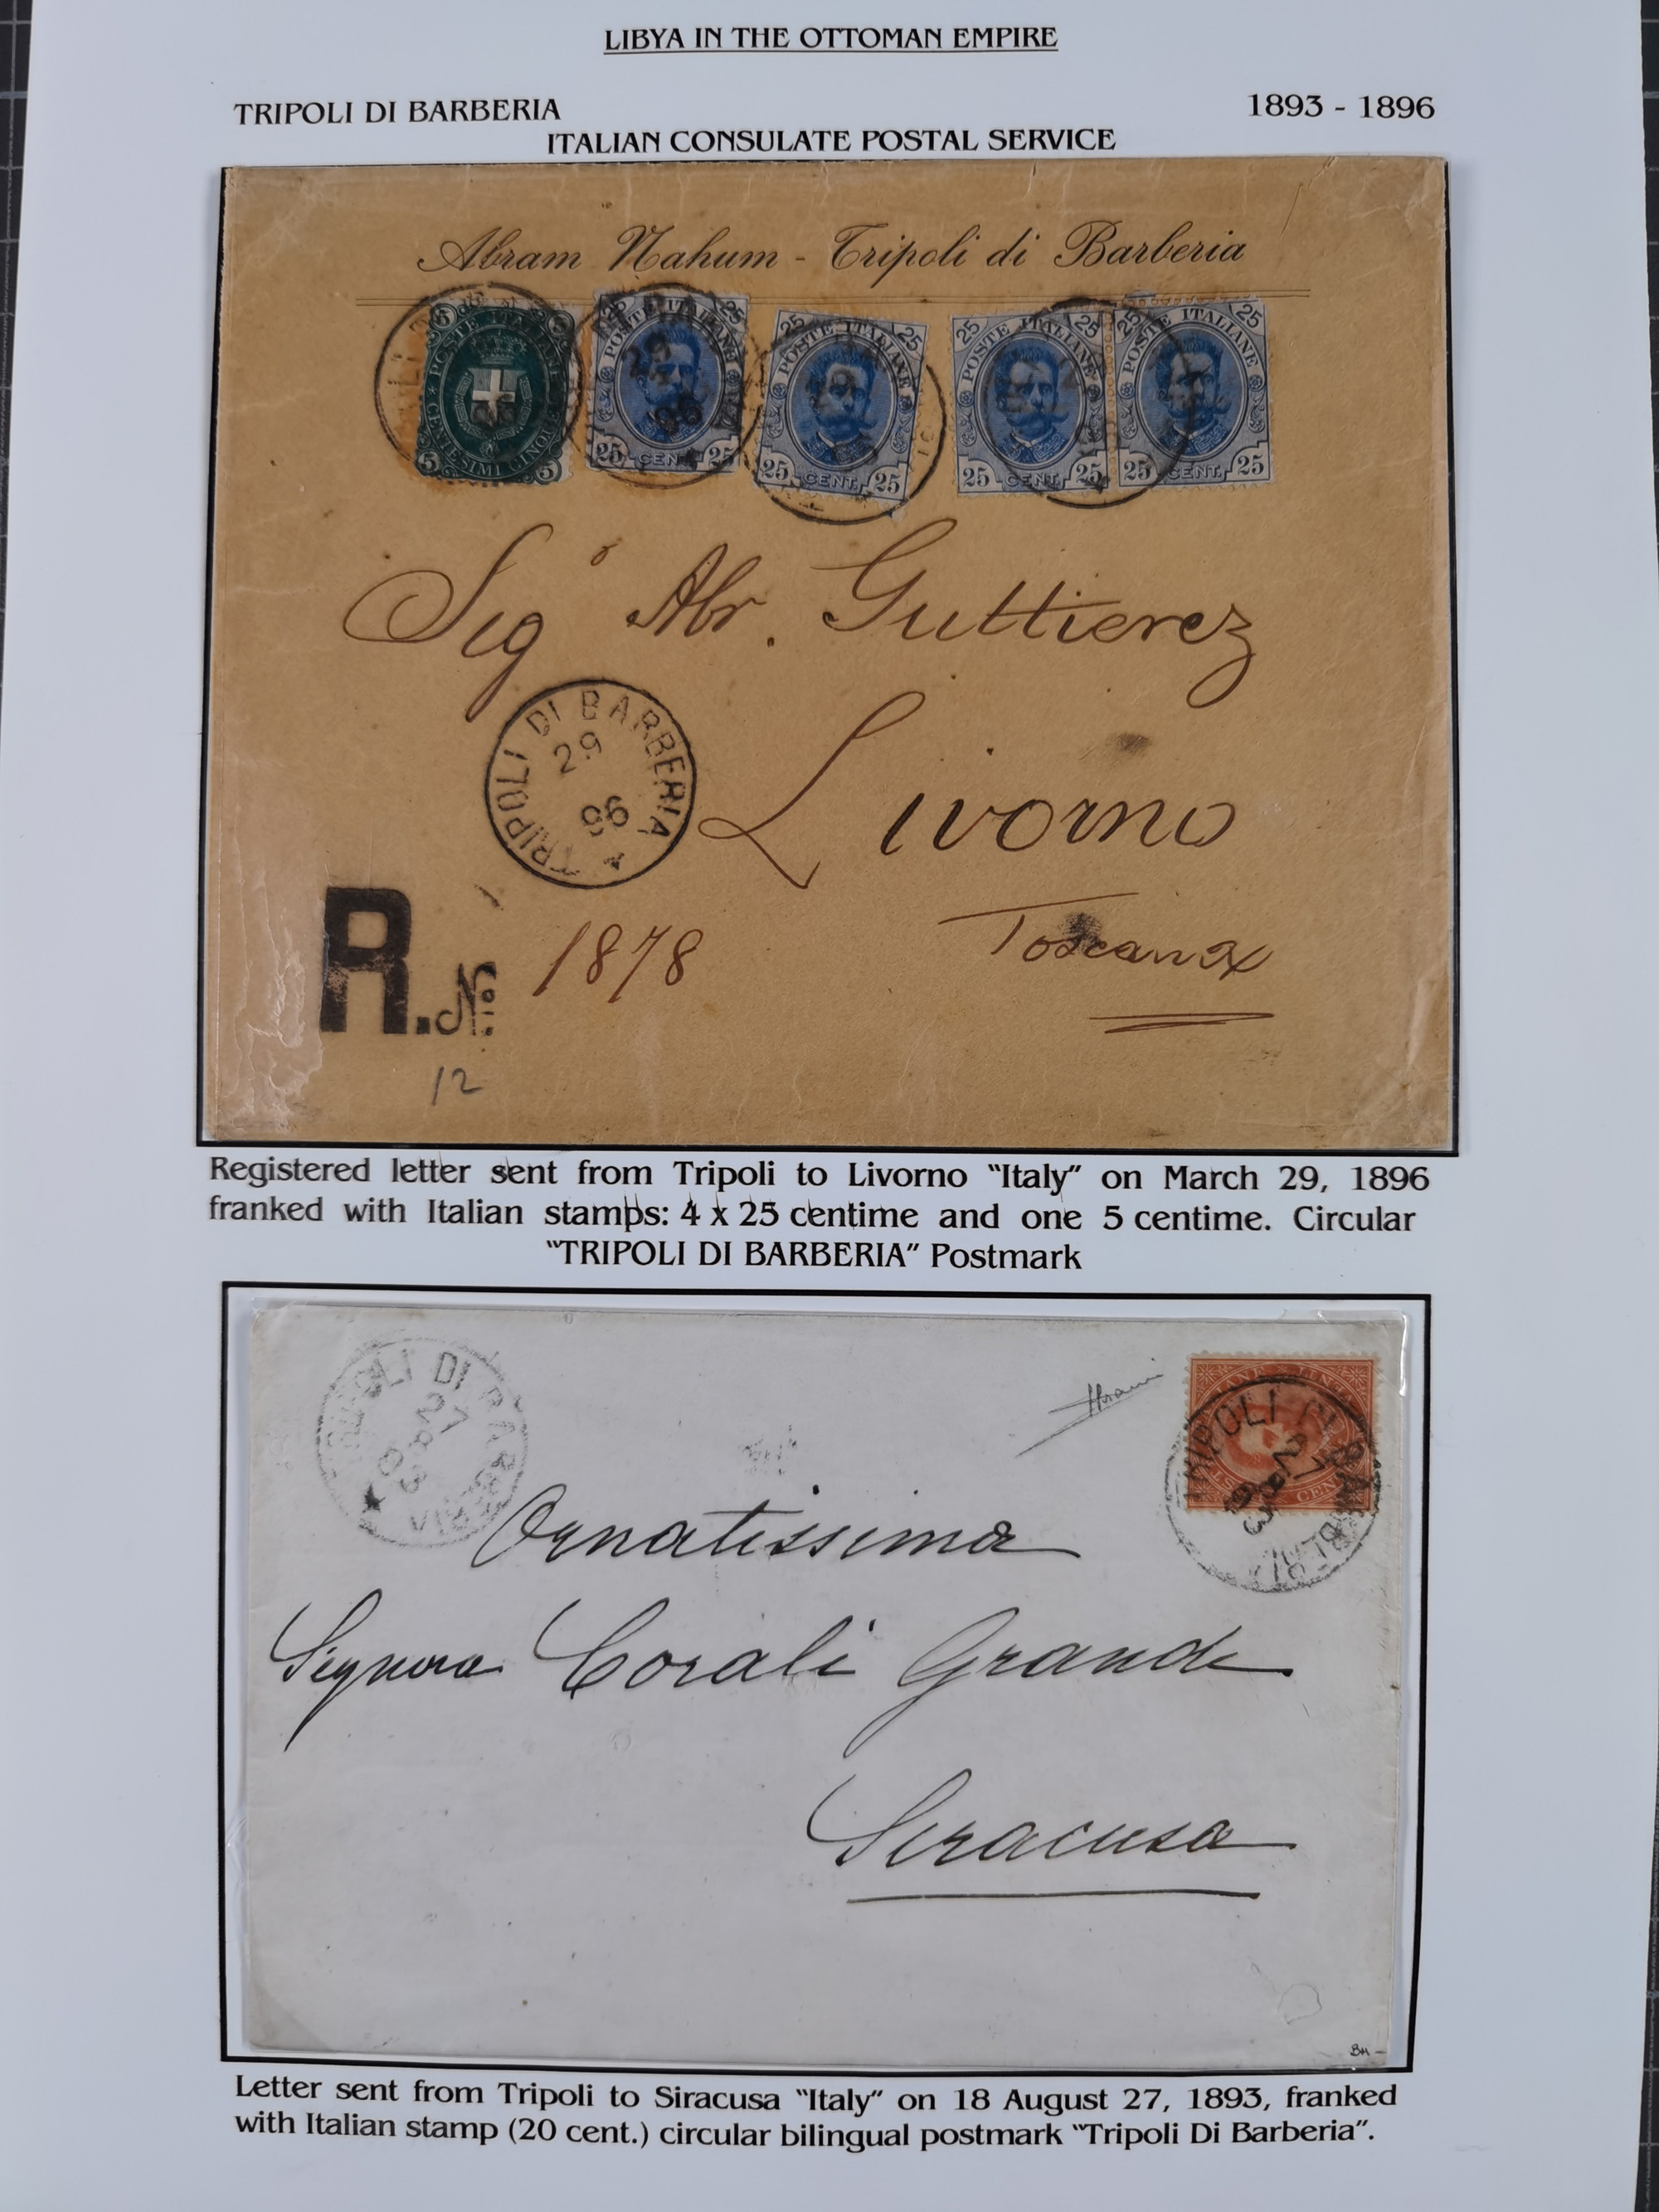 LIBYA IN THE OTTOMAN EMPIRE
TRIPOLI DI BARBERIA
1893 - 1896
ITALIAN CONSULATE POSTAL SERVICE
Abram Nahum - Tripoli di Barberia
5 POSTE ITALIANE 5
5 CENTESIMI CINQUE 5
25 POSTE ITALIANE 25
29
96
25 CENT. 25
25 POSTE ITALIANE 25
25 CENT. 25
25 POSTE ITALIANE 25
25 CENT. 25
25 POSTE ITALIANE 25
25 CENT. 25
Sigo Abr. Guttierez
TRIPOLI DI BARBERIA
29
96
Livorno
Toscana
R. No.
1878
12
Registered letter sent from Tripoli to Livorno "Italy" on March 29, 1896
franked with Italian stamps: 4 x 25 centime and one 5 centime. Circular
"TRIPOLI DI BARBERIA" Postmark
TRIPOLI DI BARBERIA
27
8
93
TRIPOLI DI BARBERIA
27
8
93
Ornatissima
Signora Corali Grande
Siracusa
BH
Letter sent from Tripoli to Siracusa "Italy" on 18 August 27, 1893, franked
with Italian stamp (20 cent.) circular bilingual postmark "Tripoli Di Barberia".